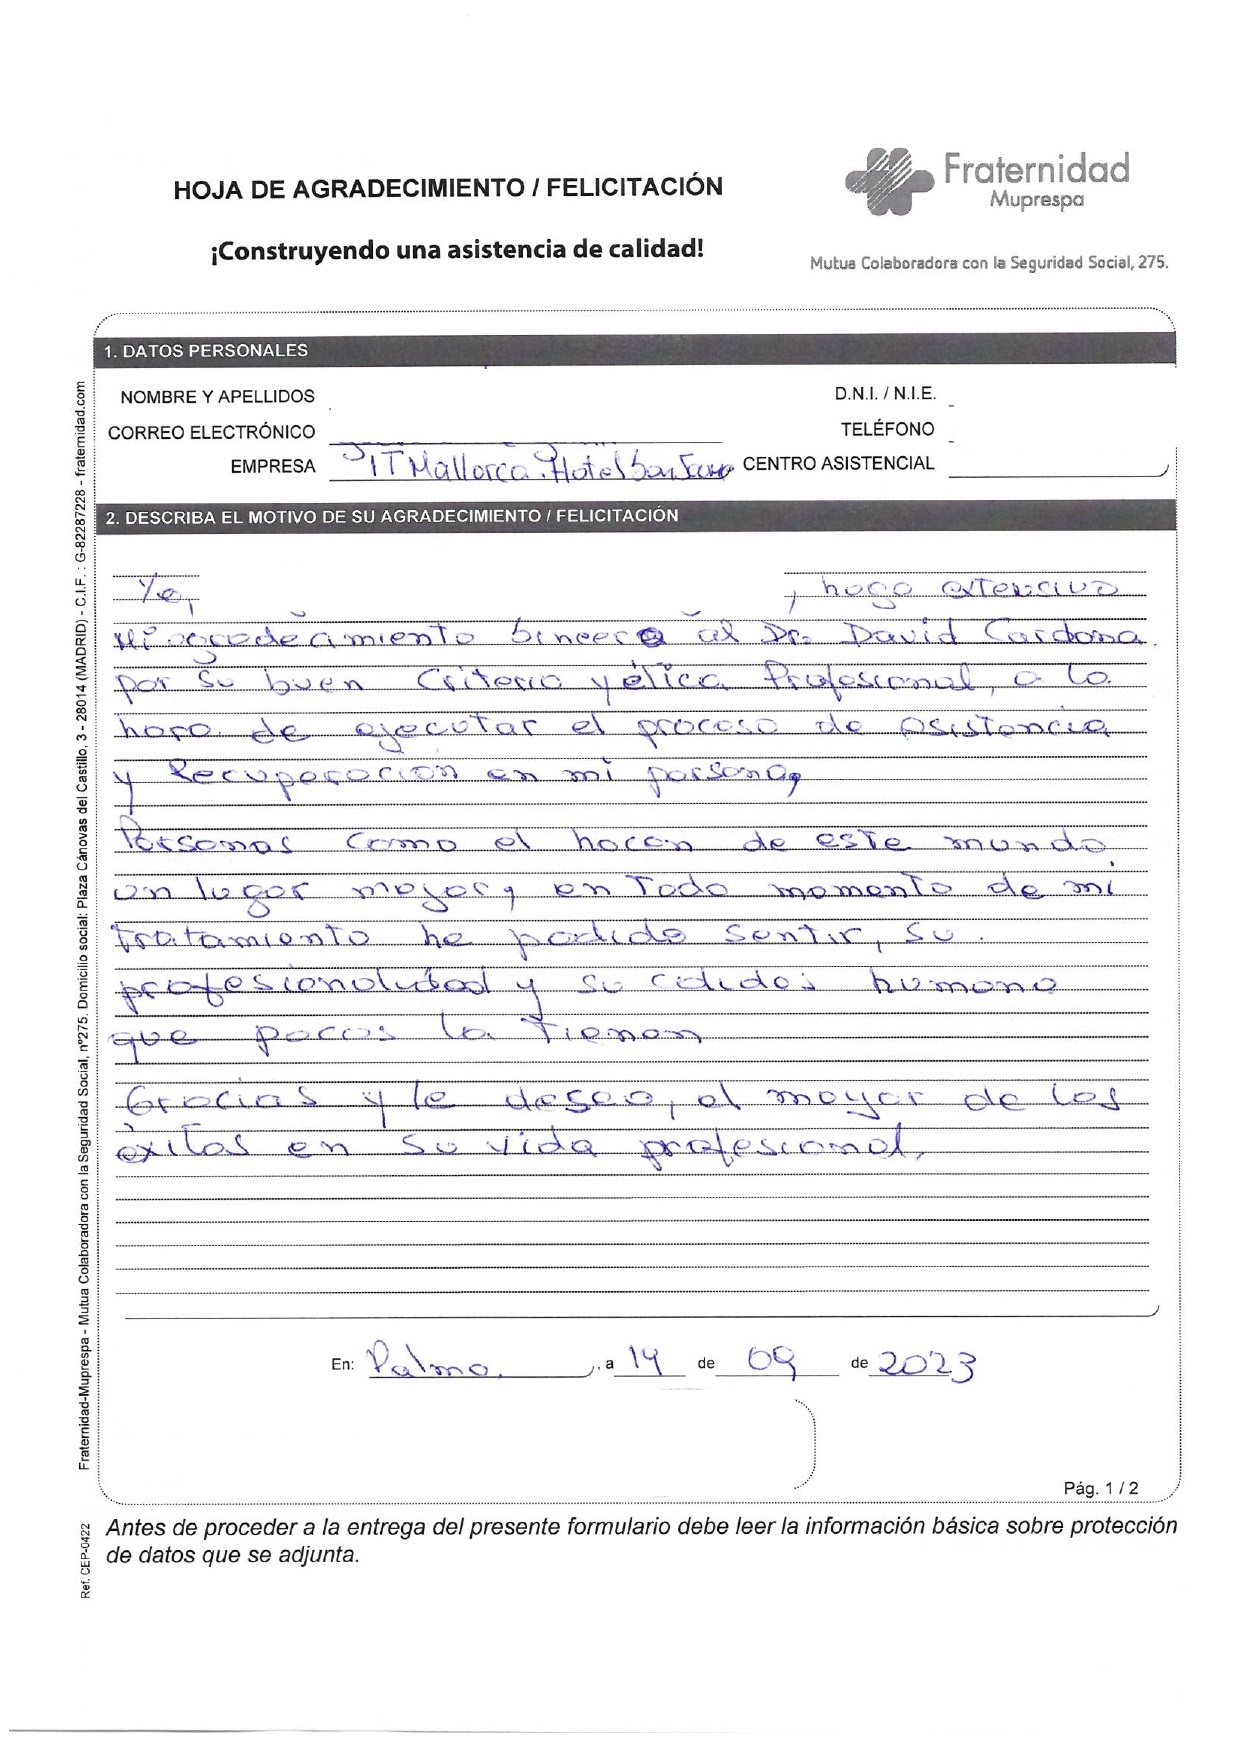 HOJA DE AGRADECIMIENTO / FELICITACIÓN
Fraternidad
Muprespa
¡Construyendo una asistencia de calidad!
Mutua Colaboradora con la Seguridad Social, 275.
1. DATOS PERSONALES
NOMBRE Y APELLIDOS
D.N.I. / N.I.E.
CORREO ELECTRÓNICO
TELÉFONO
EMPRESA JIT Mallorca. Hotel CENTRO ASISTENCIAL
2. DESCRIBA EL MOTIVO DE SU AGRADECIMIENTO / FELICITACIÓN
Yo, , hago extensivo
Mi agradeamiento sincero al Dr. David Cardona
por su buen Criterio y ética Profesional, a la
hora de ejecutar el proceso de asistencia
y Recuperación en mi persona,
Personas como el hacen de este mundo
un lugar mejor, en Todo momento de mi
tratamiento he podido sentir, su
profesionalidad y su humano
que pocos la Tienen
Gracias y le deseo, el mayor de los
éxitos en su vida profesional.
En: Palma. , a 14 de 09 de 2023
Pág. 1 / 2
Antes de proceder a la entrega del presente formulario debe leer la información básica sobre protección
de datos que se adjunta.
Fraternidad-Muprespa - Mutua Colaboradora con la Seguridad Social, nº275. Domicilio social: Plaza Cánovas del Castillo, 3 - 28014 (MADRID) - C.I.F. : G-82287228 - fraternidad.com
Ref. CEP-0422